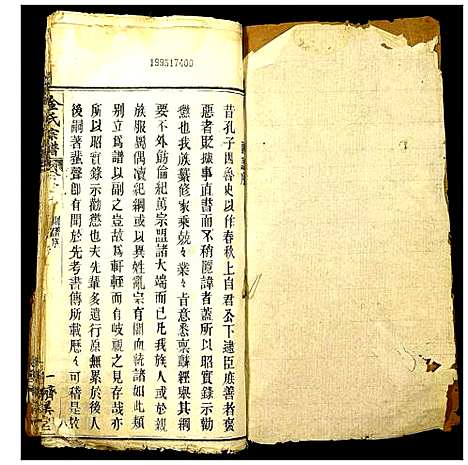 199517400
昔孔子因魯史以作春秋上自君公下逮臣庶善者褒
惡者貶據事直書而不稍匿諱者蓋所以昭實錄示勸
懲也我族纂修家乘兢々業々肯悉稟蘇經舉其綱
要不外倫紀萬宗盟諸大端而已我族人或於親
族服屬偶瀆紀綱或以異姓亂宗有關血統諸如此類
別立為譜以副之豈故為軒輊而有岐視之見存哉亦
所以昭實錄示勸懲也夫先輩多遺行原無累於後人
後嗣著蜚聲卽有聞於先考書傳所載歷々可稽是故
金氏宗譜
八